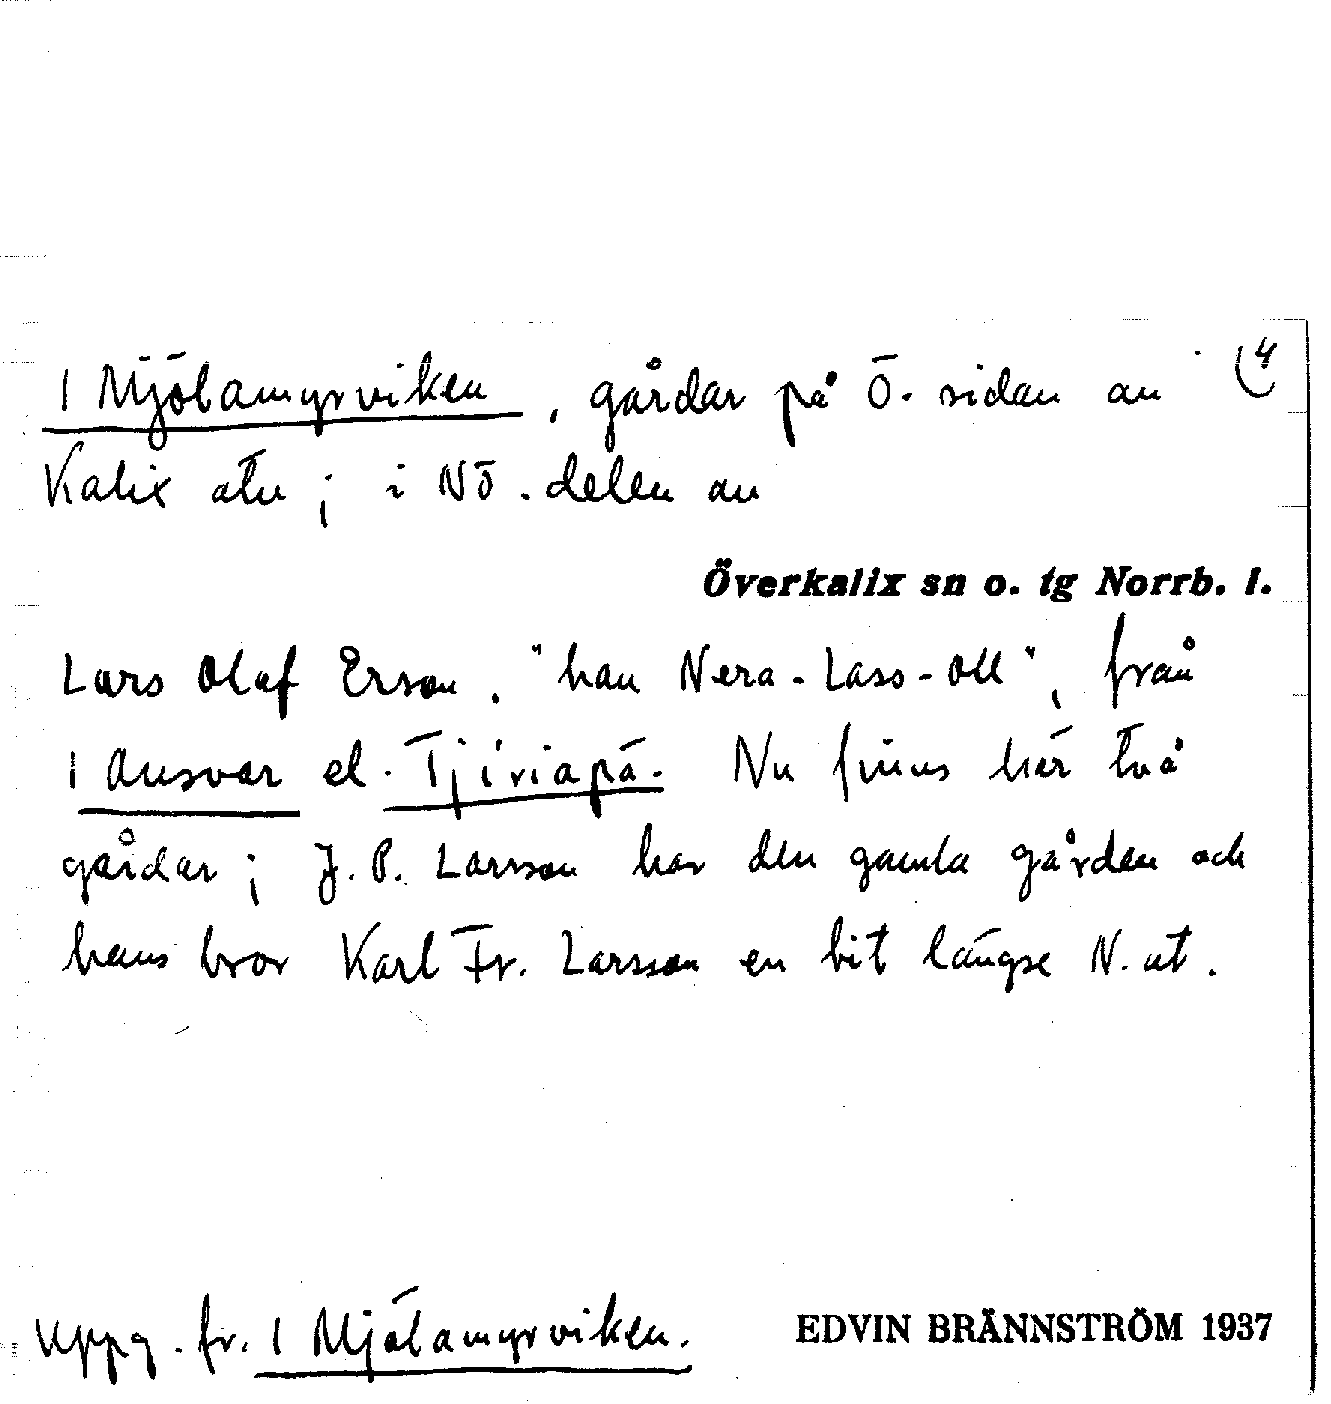 1 Mjölamyrviken, gårdar på Ö. sidan av (4
Kalix älv; i NÖ. delen av
Överkalix sn o. tg Norrb. l.
Lars Olof Erson, "han Nera-Lass-Oll", från
1 Ansvar el. Tjiviapä. Nu finns här två
gårdar; J. P. Larsson har den gamla gården och
hans bror Karl Fr. Larsson en bit längse N. ut.
Uppg. fr. 1 Mjölamyrviken. EDVIN BRÄNNSTRÖM 1937